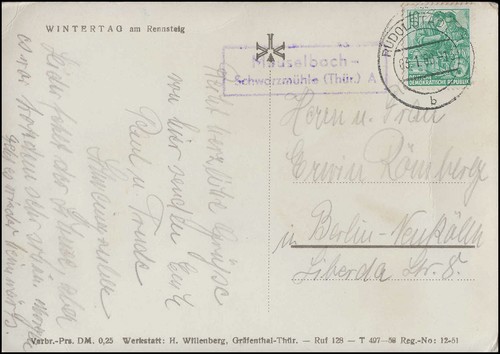 WINTERTAG am Rennsteig
Meuselbach-
Schwarzmühle (Thür.) A
RUDOLS
b
DEUTSCHE DEMOKRATISCHE REPUBLIK
Recht herzliche Grüsse
von hier senden Euch
Paul u. Trude
Leider fehlt der Schnee aber
es war trotzdem sehr schön.
Herrn u. Frau
Erwin Römberge
in Berlin-Neukölln
Liberda Str. 8.
Verbr.-Prs. DM. 0,25 Werkstatt: H. Willenberg, Gräfenthal-Thür. - Ruf 128 - T 497-58 Reg.-No: 12-61